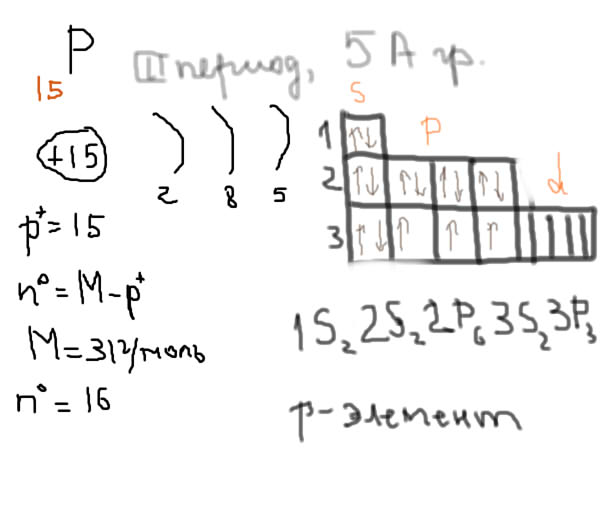 15P III период, 5 А гр.
+15 2 8 5
s p d
1 ↑↓
2 ↑↓ ↑↓ ↑↓ ↑↓
3 ↑↓ ↑ ↑ ↑
p⁺ = 15
n⁰ = M - p⁺
M = 31 г/моль
n⁰ = 16
1S₂2S₂2P₆3S₂3P₃
p-элемент